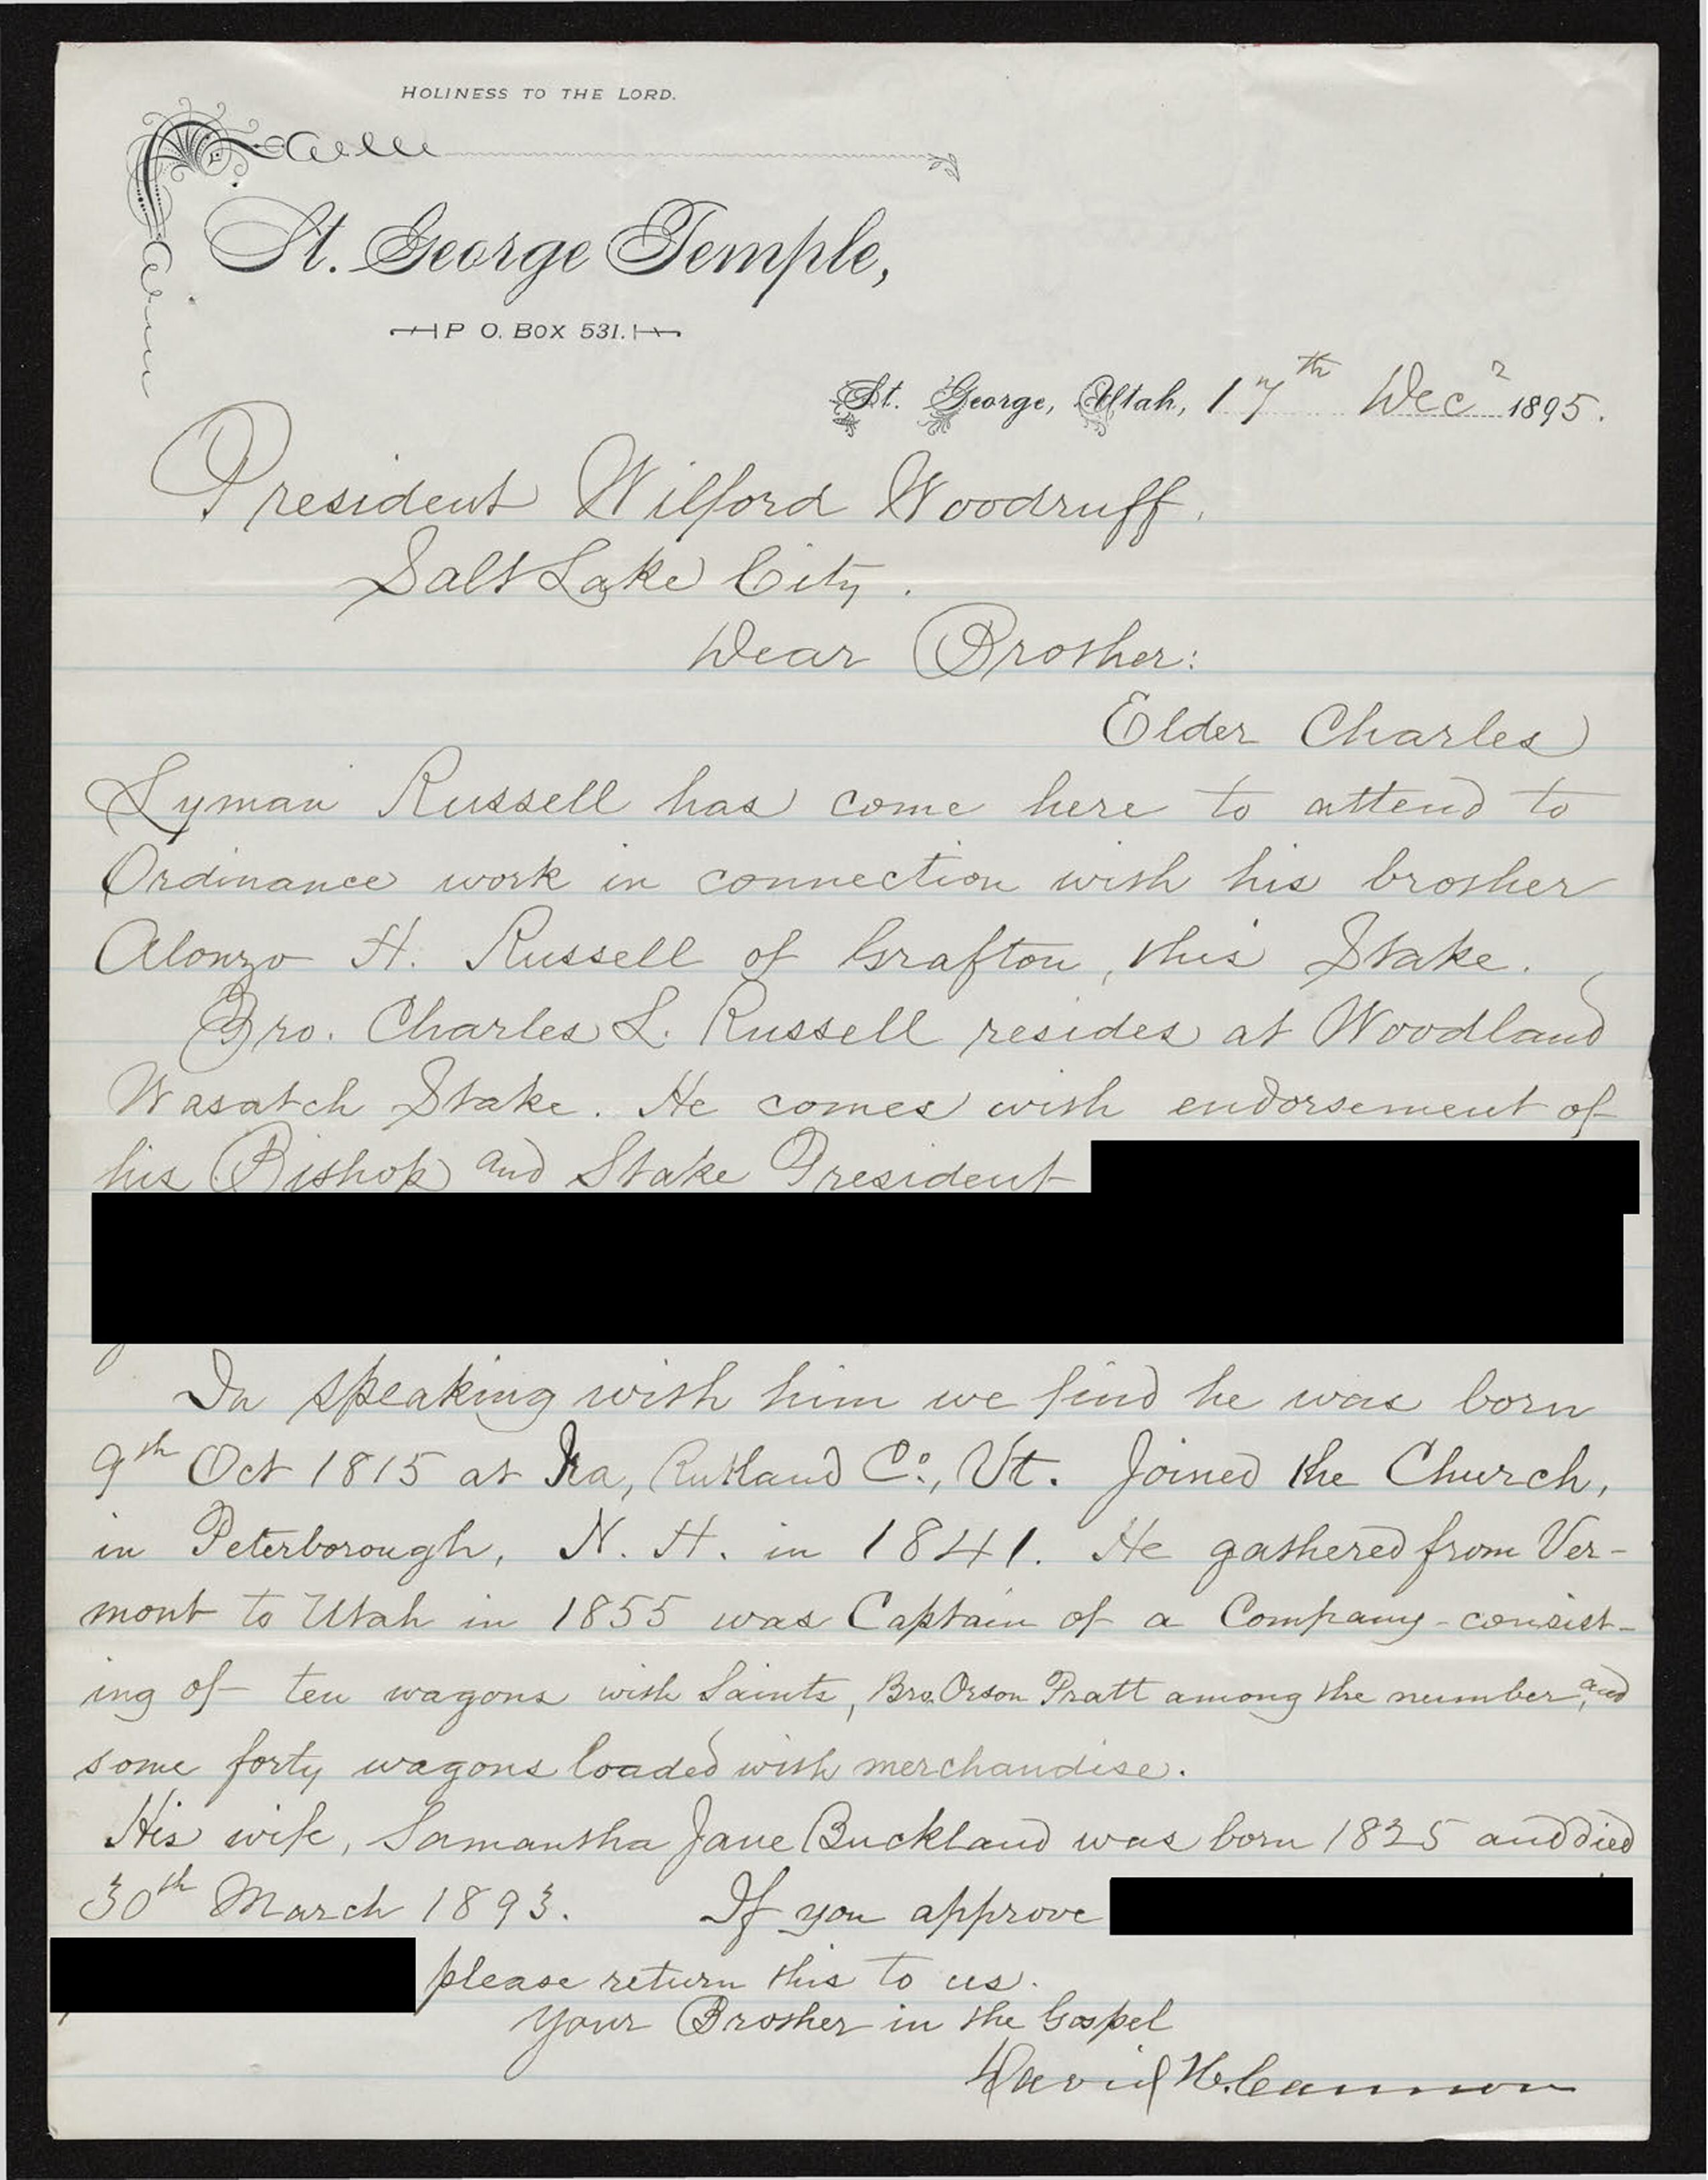 HOLINESS TO THE LORD.
St. George Temple,
P O. BOX 531.
St. George, Utah, 17th Decr 1895.
President Wilford Woodruff.
Salt Lake City.
Dear Brother:
Elder Charles
Lyman Russell has come here to attend to
Ordinance work in connection with his brother
Alonzo H. Russell of Grafton, this Stake.
Bro. Charles L. Russell resides at Woodland
Wasatch Stake. He comes with endorsement of
his Bishop and Stake President
In speaking with him we find he was born
9th Oct 1815 at Ira, Rutland Co., Vt. Joined the Church,
in Peterborough, N. H. in 1841. He gathered from Ver-
mont to Utah in 1855 was Captain of a Company - consist-
ing of ten wagons with Saints, Bro. Orson Pratt among the number, and
some forty wagons loaded with merchandise.
His wife, Samantha Jane Buckland was born 1825 and died
30th March 1893. If you approve
please return this to us.
Your Brother in the Gospel
David H. Cannon